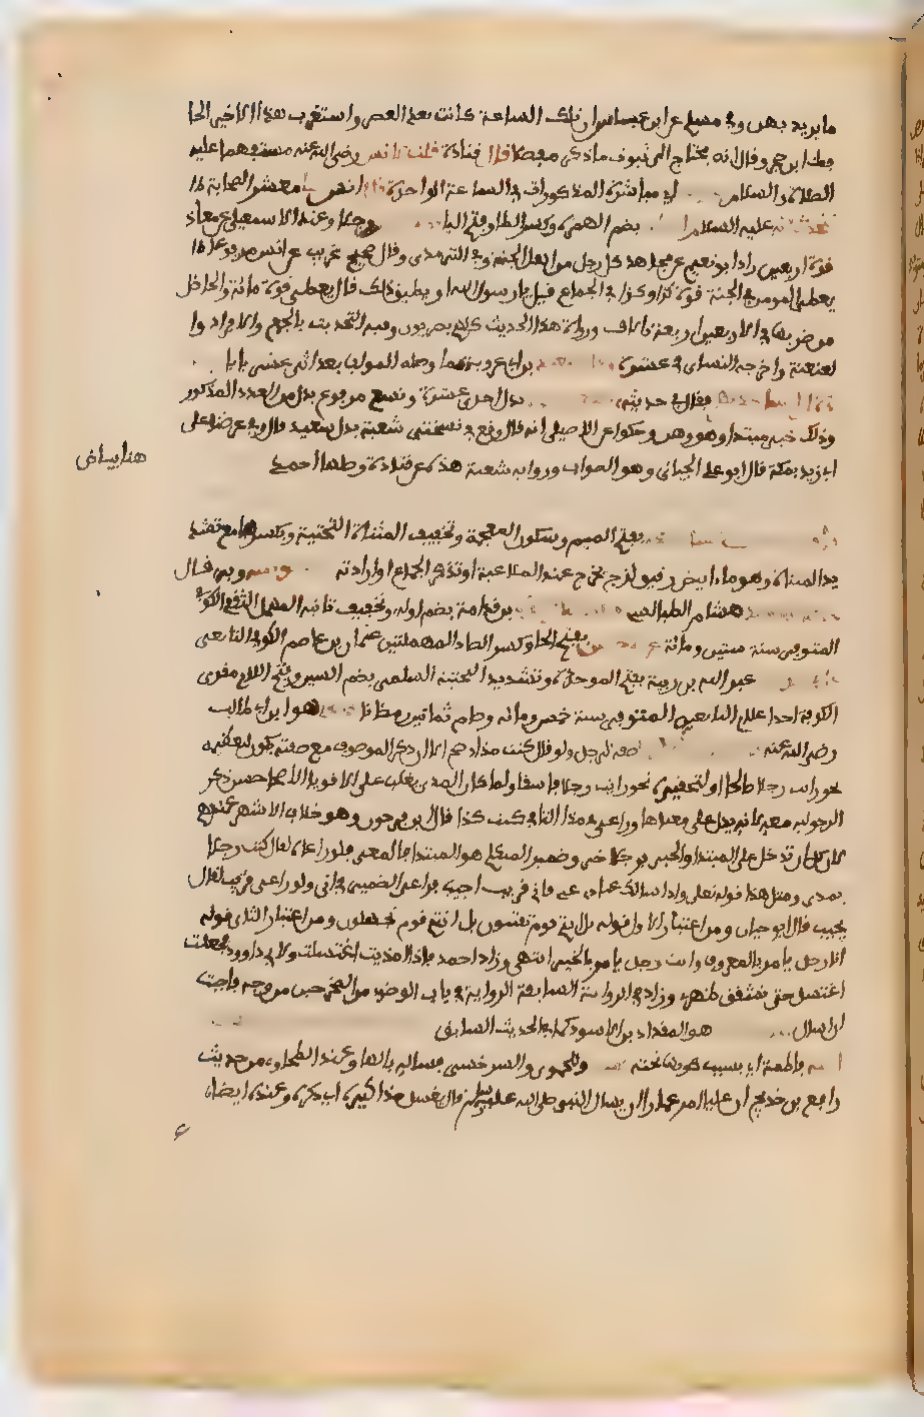 ما يريد بهن وفي مسلم عن ابن عباس ان تلك الساعة كانت بعد العصر واستغرب هذا الاخير الحا
فظ ابن حجر وقال انه يحتاج الى ثبوت ما ذكره مفصلا قال قتادة قلت لانس رضي الله عنه مستفهما عليه
الصلاة والسلام اي مباشرة المذكورات في الساعة الواحدة قال انس معشر الصحابة
نتحدث انه عليه السلام بضم الهمزة وكسر الطاء وفتح اليا رجلا وعند الاسمعيلي عن معاذ
قوة اربعين زاد ابو نعيم عن مجاهد كل رجل من اهل الجنة وفي الترمذي وقال صحيح غريب عن انس مرفوعا
يعطى المومن في الجنة قوة كذا وكذا في الجماع قيل يا رسول الله او يطيق ذلك قال يعطى قوة مائة والحاصل
من ضربها في الاربعين اربعة الاف ورواة هذا الحديث كلهم بصريون وفيه التحديث بالجمع والافراد وا
لعنعنة واخرجه النسائي في عشرة بن ابي عروبة مما وصله المولف بعد اثني عشر بابا
في حديثه بدل احدى عشرة وتسع مرفوع بدل من العدد المذكور
وذلك خبر مبتدا وهو وهن وحكوا عن الاصيلي انه قال وقع في نسختي شعبة بدل سعيد قال وفي عرضنا على
ابي زيد بمكة قال ابو علي الجياني وهو الصواب ورواية شعبة هذه عن قتادة وصلها احمد
هنا بياض
بفتح الميم وسكون المعجمة وتخفيف المثناة التحتية وبكسرها مع تشد
يد المثناة وهو ماء ابيض رقيق لزج يخرج عند الملاعبة او تذكر الجماع او ارادته وبه قال
هشام الطيالسي بن قدامة بضم اوله وتخفيف ثانيه المهمل الثقفي الكوفي
المتوفى سنة ستين ومائة بفتح الحا وكسر الصاد المهملتين عثمان بن عاصم الكوفي التابعي
عبد الله بن ربيعة بفتح الموحدة وتشديد التحتية السلمي بضم السين وفتح اللام مقري
الكوفة احد اعلام التابعين المتوفى سنة خمس ومائة وصام ثمانين رمضانا هو ابن ابي طالب
رضي الله عنه صفة لرجل ولو قال كنت مذاء صح الا ان ذكر الموصوف مع صفته يكون لتعظيمه
نحو رايت رجلا صالحا او لتحقيره نحو رايت رجلا فاسقا ولما كان المذي يغلب على الاقوياء الاصحا حسن ذكر
الرجولية معه لانه يدل على معناها وراعى في مذاء الثاني كنت كذا قال ابن فرحون وهو خلاف الاشهر عندهم
لان كان تدخل على المبتدا والخبر فرجلا خبر وضمير المتكلم هو المبتدا في المعنى فلو راعاه لقال كنت رجلا
يمذي ومثل هذا قوله تعلى واذا سالك عبادي عني فاني قريب اجيب فراعى الضمير في اني ولو راعى قريب لقال
يجيب قال ابو حيان ومن اعتبار الاول قوله بل انتم قوم تفتنون بل انتم قوم تجهلون ومن اعتبار الثاني قوله
انا رجل يامر بالمعروف وانت رجل يامر بالخير انتهى وزاد احمد فاذا امذيت اغتسلت ولابي داوود فجعلت
اغتسل حتى تشقق ظهري وزاد في الرواية السابقة الرواية في باب الوضوء من المخرجين من وجه فاحببت
ان اسال هو المقداد بن الاسود كما في الحديث السابق
فاطمة اي بسبب كونها تحته وللحموي والسرخسي فساله بالها وعند الطحاوي من حديث
رافع بن خديج ان عليا امر عمارا ان يسال النبي صلى الله عليه وسلم قال يغسل مذاكيره اي ذكره وعنده ايضا